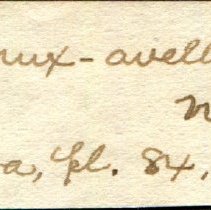 nux-avell
a, pl. 84,